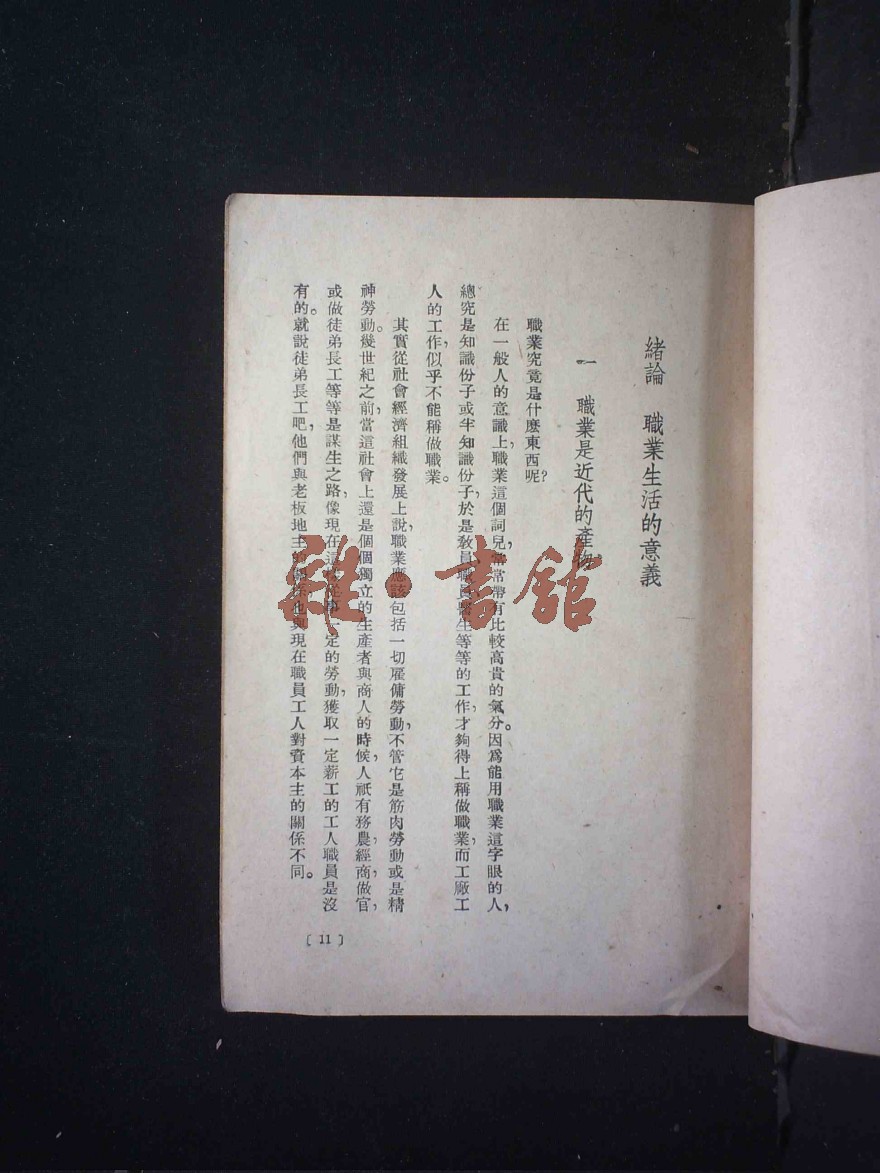 緒論　職業生活的意義
一　職業是近代的產物
職業究竟是什麼東西呢？
在一般人的意識上，職業這個詞兒，常常帶有比較高貴的氣分。因爲能用職業這字眼的人，
總究是知識份子或半知識份子，於是教員職員醫生等等的工作，才夠得上稱做職業，而工廠工
人的工作，似乎不能稱做職業。
其實從社會經濟組織發展上說，職業應該包括一切雇傭勞動，不管它是筋肉勞動或是精
神勞動。幾世紀之前，當這社會上還是個個獨立的生產者與商人的時候，人祇有務農，經商，做官，
或做徒弟長工等等是謀生之路，像現在這一定的勞動，獲取一定薪工的工人職員是沒
有的。就說徒弟長工吧，他們與老板地主的關係也與現在職員工人對資本主的關係不同。
〔11〕
雜·書館